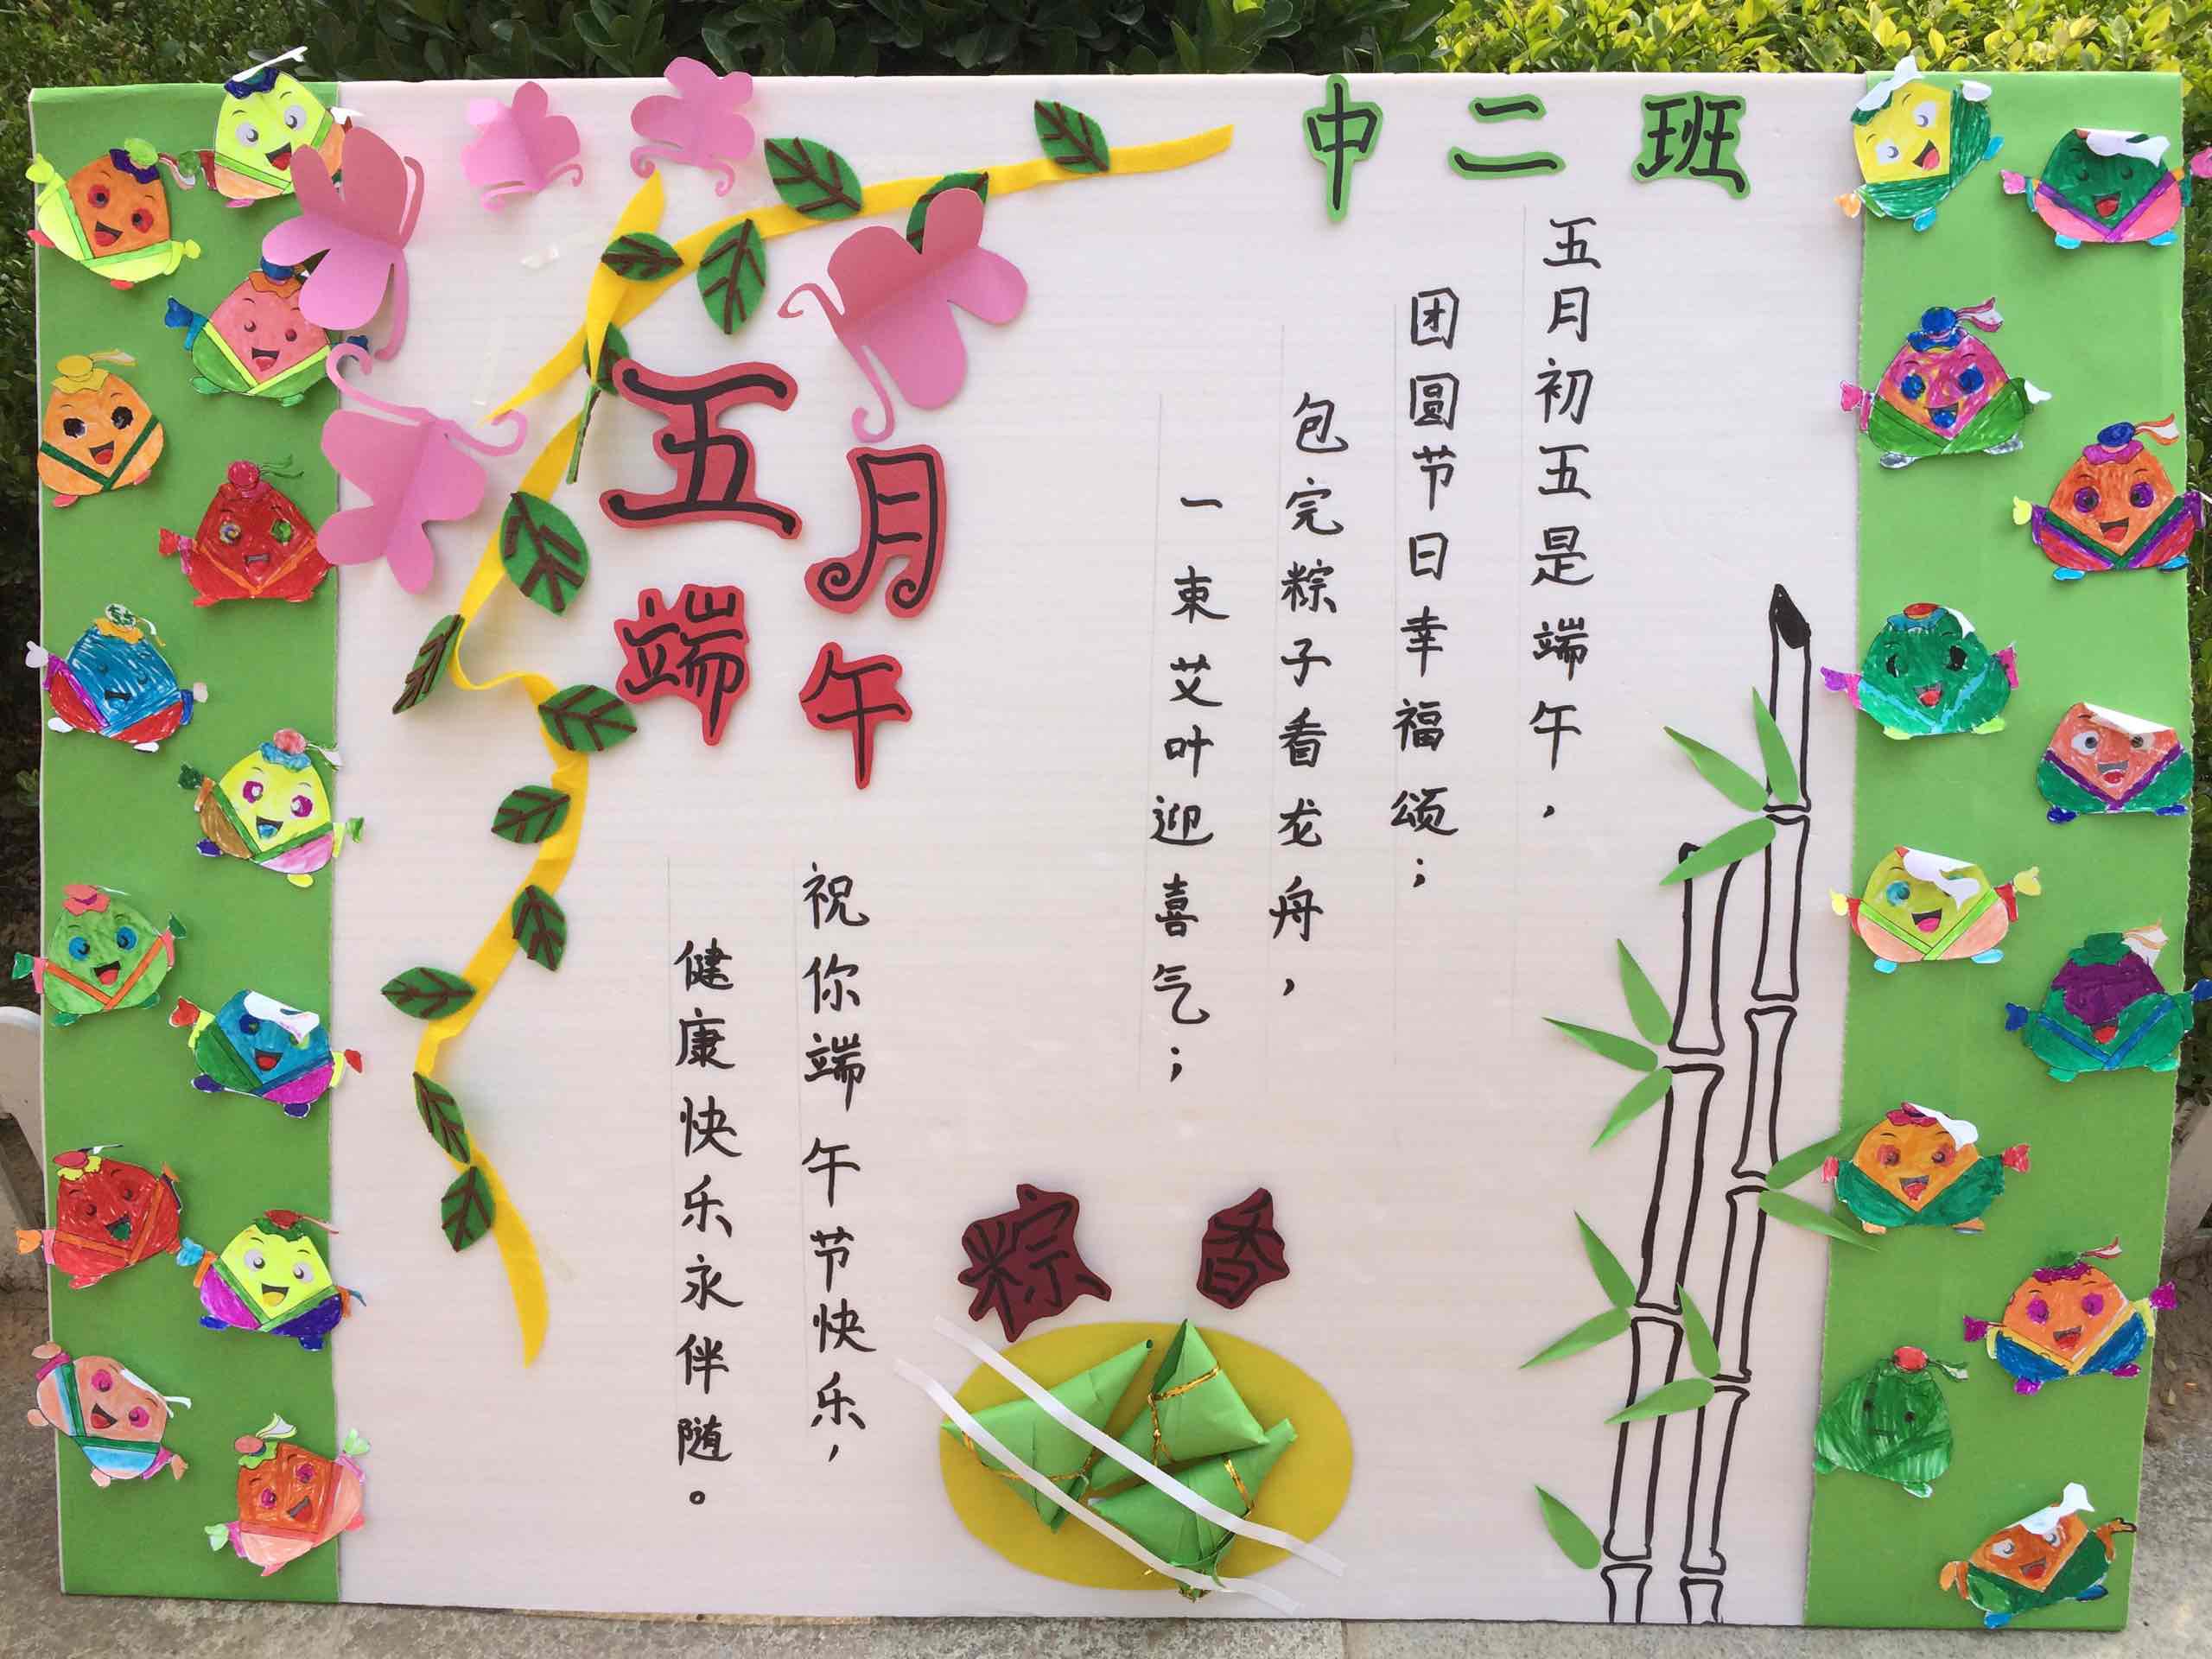 中二班
五月初五是端午，
团圆节日幸福颂；
包完粽子看龙舟，
一束艾叶迎喜气；
五月
端午
祝你端午节快乐，
健康快乐永伴随。
粽香